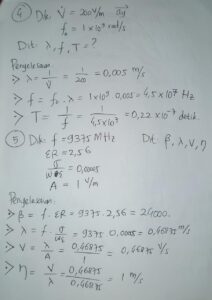 ④ Dik: V̇ = 200 V/m  ay
fo = 1 x 10⁹ rad/s
Dit: λ, f, T = ?
Penyelesaian:
⇒ λ = 1/V̇ = 1/200 = 0,005 m/s
⇒ f = fo . λ = 1 x 10⁹ . 0,005 = 4,5 x 10⁷ Hz
⇒ T = 1/f = 1/4,5 x 10⁷ = 0,22 x 10⁻⁷ detik.
⑤ Dik: f = 9375 MHz  Dit: β, λ, V, η
ER = 2,56
σ/ωε = 0,0005
A = 1 V/m
Penyelesaian:
⇒ β = f . ER = 9375 . 2,56 = 24000.
⇒ λ = f . σ/ωε = 9375 . 0,0005 = 0,46875 m/s
⇒ V = λ/A = 0,46875/1 = 0,46875 V/s
⇒ η = V/λ = 0,46875/0,46875 = 1 m/s